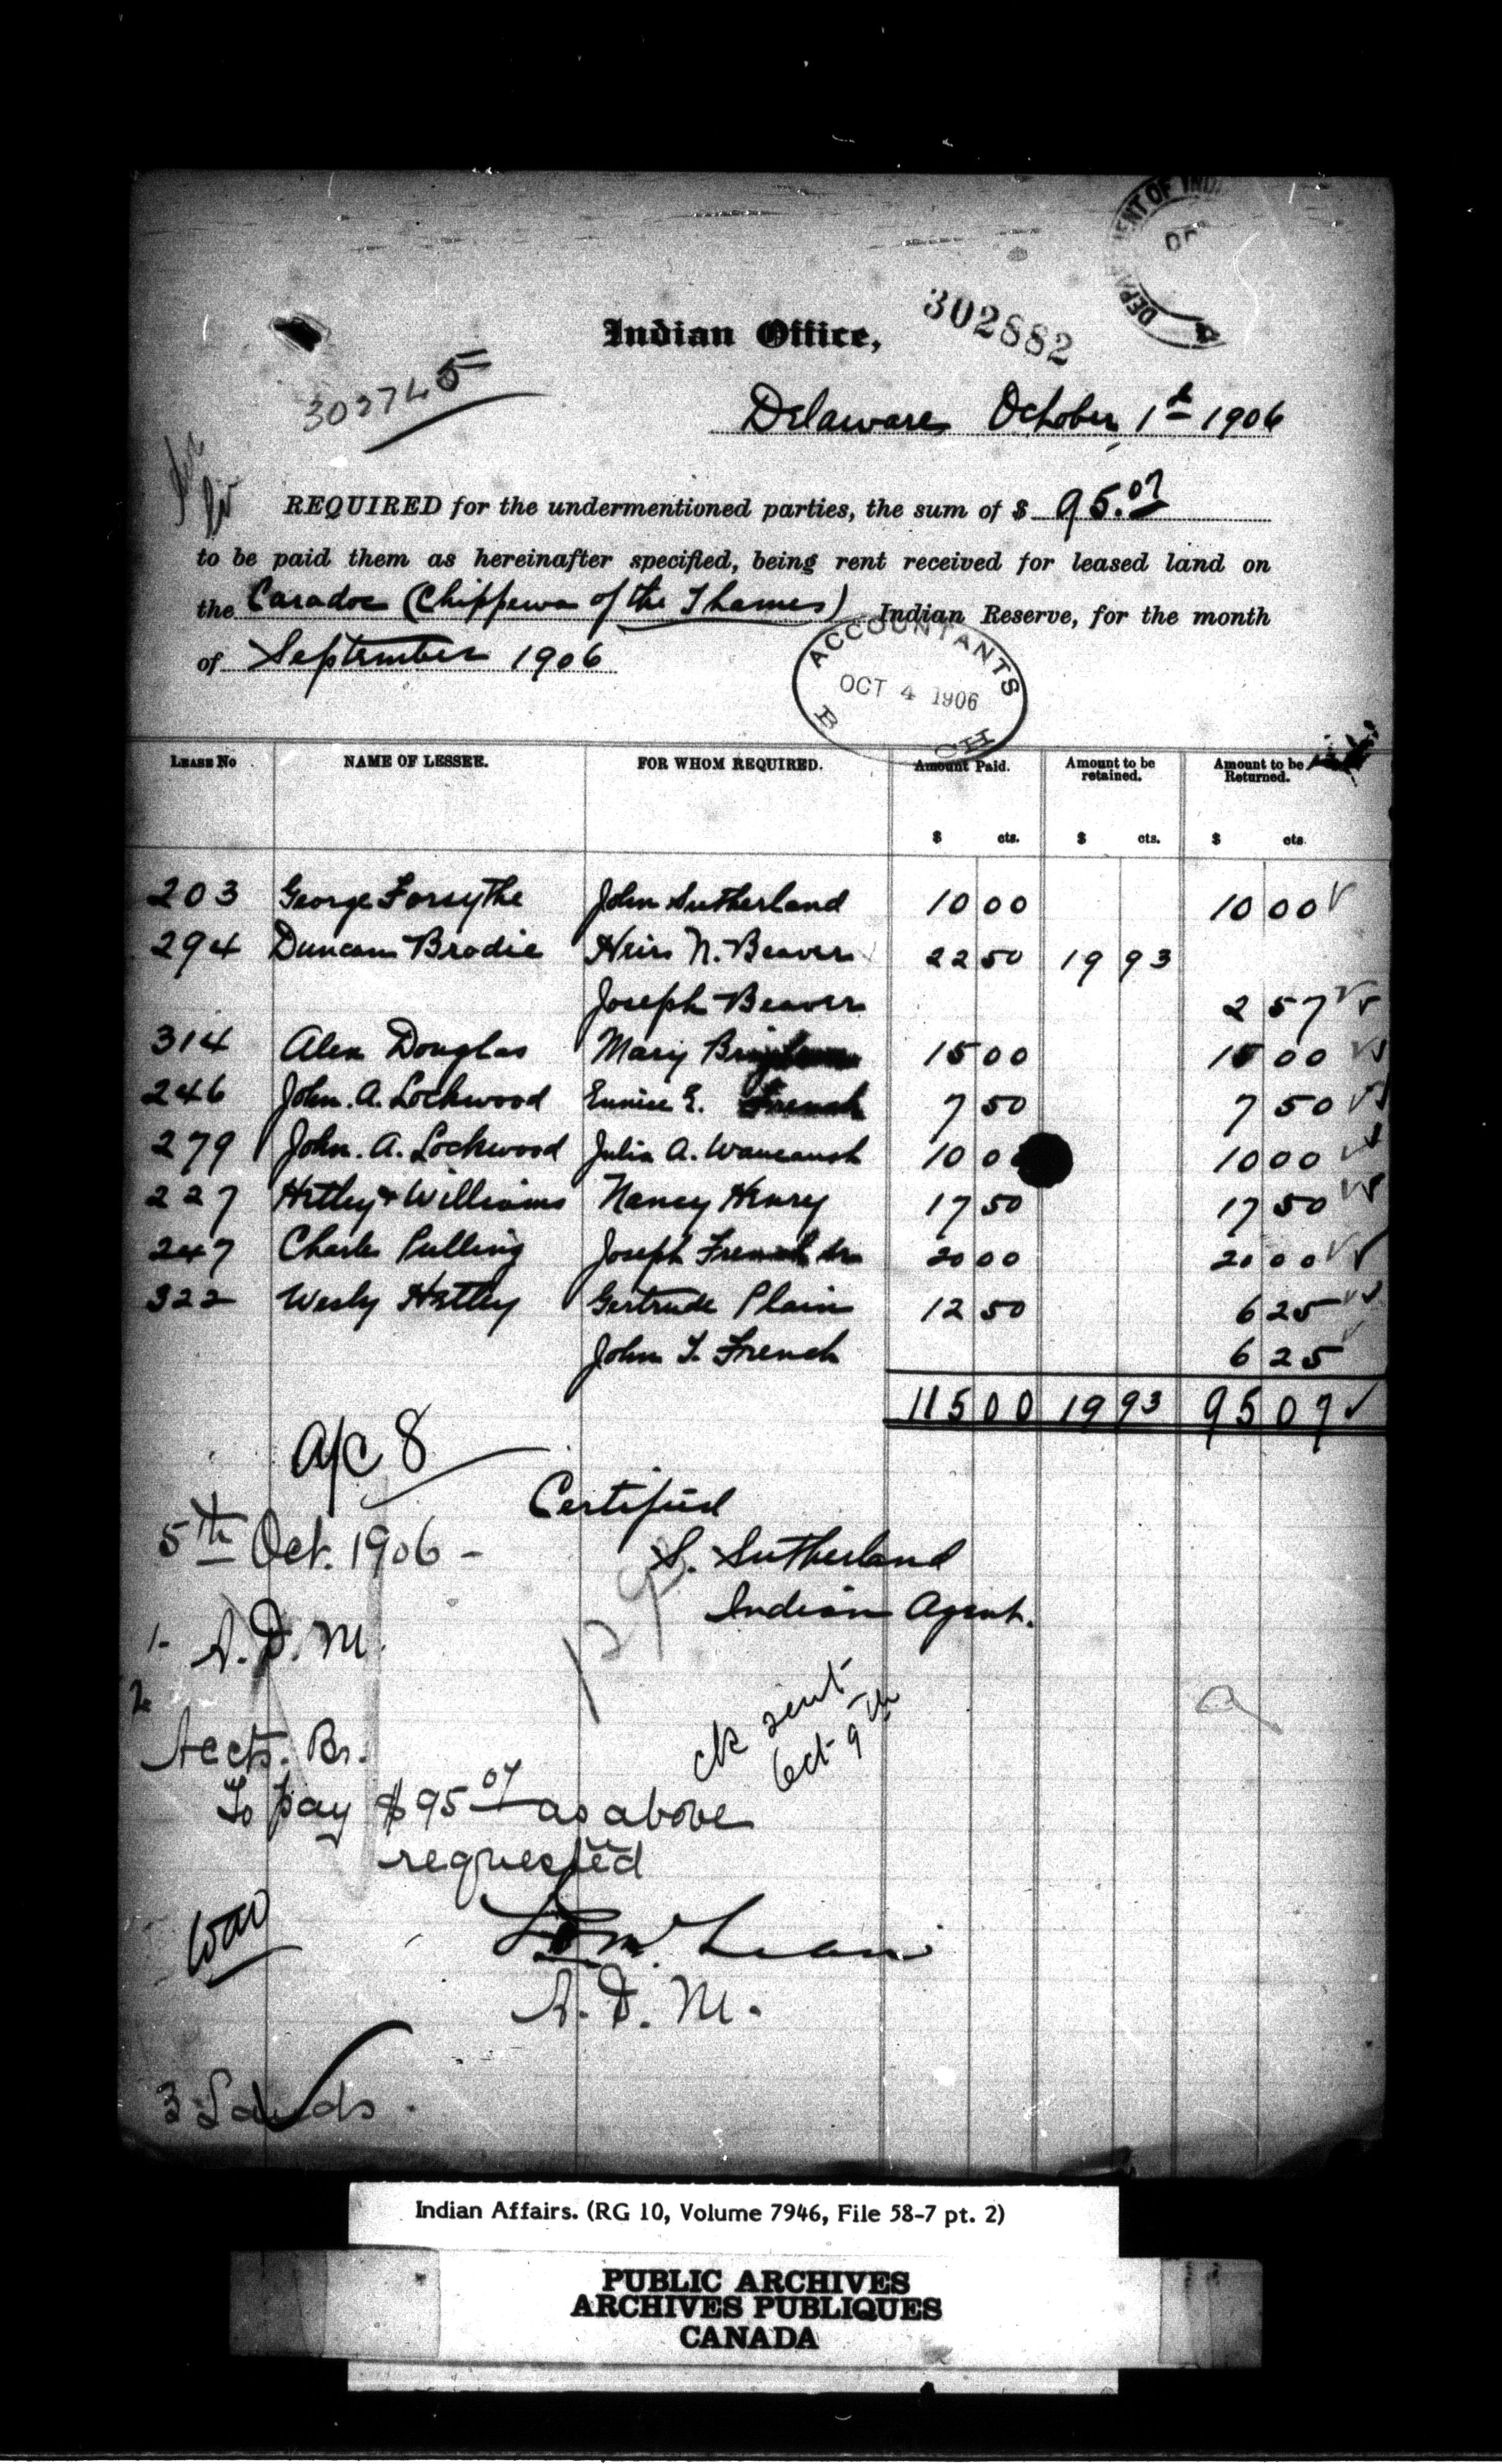 DEPA ENT OF INDI
OC
302882
Indian Office,
Delaware October 1st 1906
REQUIRED for the undermentioned parties, the sum of $ 95.07
to be paid them as hereinafter specified, being rent received for leased land on
the Caradoc (Chippewa of the Thames) Indian Reserve, for the month
of September 1906
ACCOUNTANTS
OCT 4 1906
B CH
LEASE No NAME OF LESSEE. FOR WHOM REQUIRED. Amount Paid. Amount to be retained. Amount to be Returned.
$ cts. $ cts. $ cts
203 George Forsythe John Sutherland 10 00 10 00
294 Duncan Brodie Heirs N. Beaver 22 50 19 93
Joseph Beaver 2 57
314 Alex Douglas Mary 15 00 15 00
246 John. A. Lockwood Eunice E. French 7 50 7 50
279 John. A. Lockwood Julia A. Waucaush 10 0 10 00
227 Hetley & Williams Nancy Henry 17 50 17 50
247 Charles Pulling Joseph French Sr 20 00 20 00
322 Wesly Hetley Gertrude Plain 12 50 6 25
John T. French 6 25
115 00 19 93 95 07
A/c 8
Certified
5th Oct. 1906 -
S. Sutherland
Indian Agent.
1- A. D. M.
2
Accts. Br.
ck sent
Oct 9th
To pay $95 07 as above
requested
A. D. M.
3 Lands.
Indian Affairs. (RG 10, Volume 7946, File 58-7 pt. 2)
PUBLIC ARCHIVES
ARCHIVES PUBLIQUES
CANADA